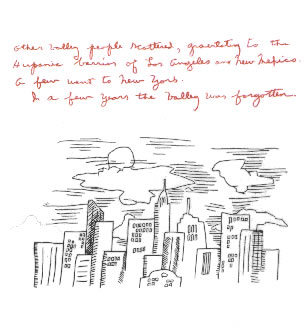 Other Valley people scattered, gravitating to the
Hispanic barrios of Los Angeles and New Mexico.
A few went to New York.
In a few years the Valley was forgotten.